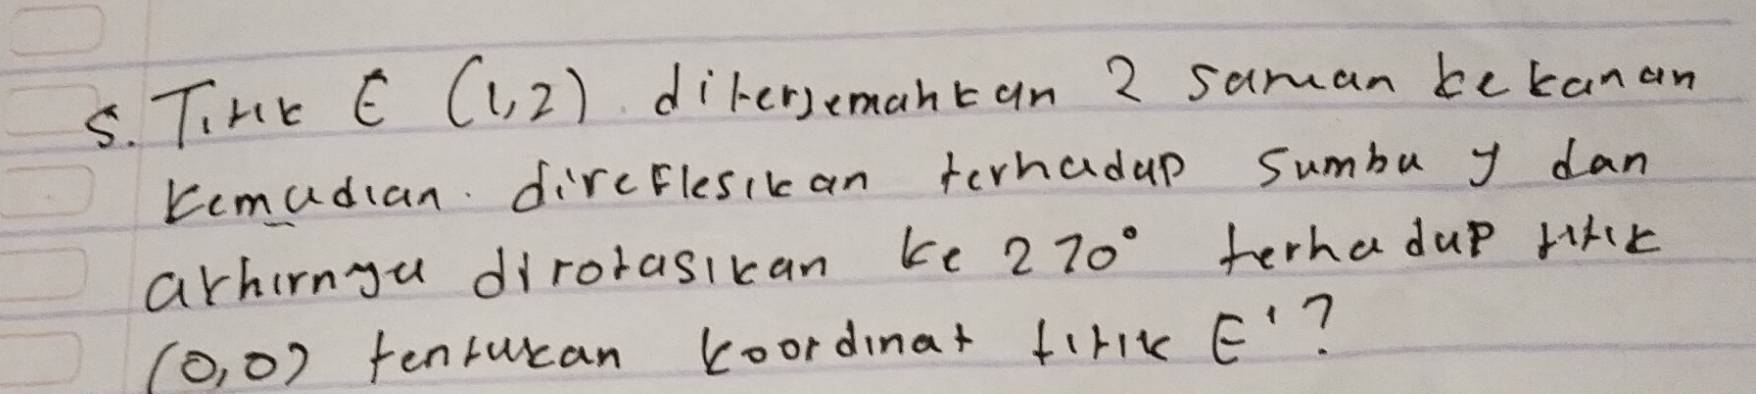 5. Titik E (1,2) diterjemahkan 2 saruan kekanan
kemudian. direflesikan terhadap sumbu y dan
akhirnya dirotasikan ke 270° terhadap titik
(0,0) tentukan koordinat titik E'?